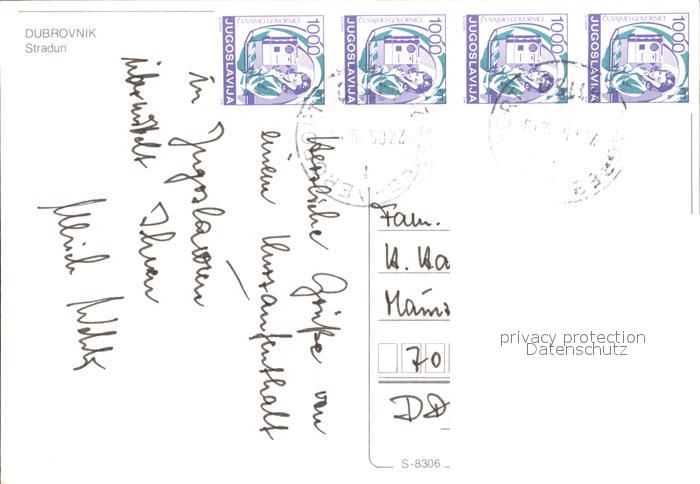 DUBROVNIK
Stradun
ČUVAJMO GOVORNICE
1000
JUGOSLAVIJA
ČUVAJMO GOVORNICE
1000
JUGOSLAVIJA
ČUVAJMO GOVORNICE
1000
JUGOSLAVIJA
ČUVAJMO GOVORNICE
1000
JUGOSLAVIJA
Herzliche Grüße von
einem Kurzaufenthalt
in Jugoslawien
übermittelt Ihnen
Ulrich
Fam.
70
DD
privacy protection
Datenschutz
S-8306